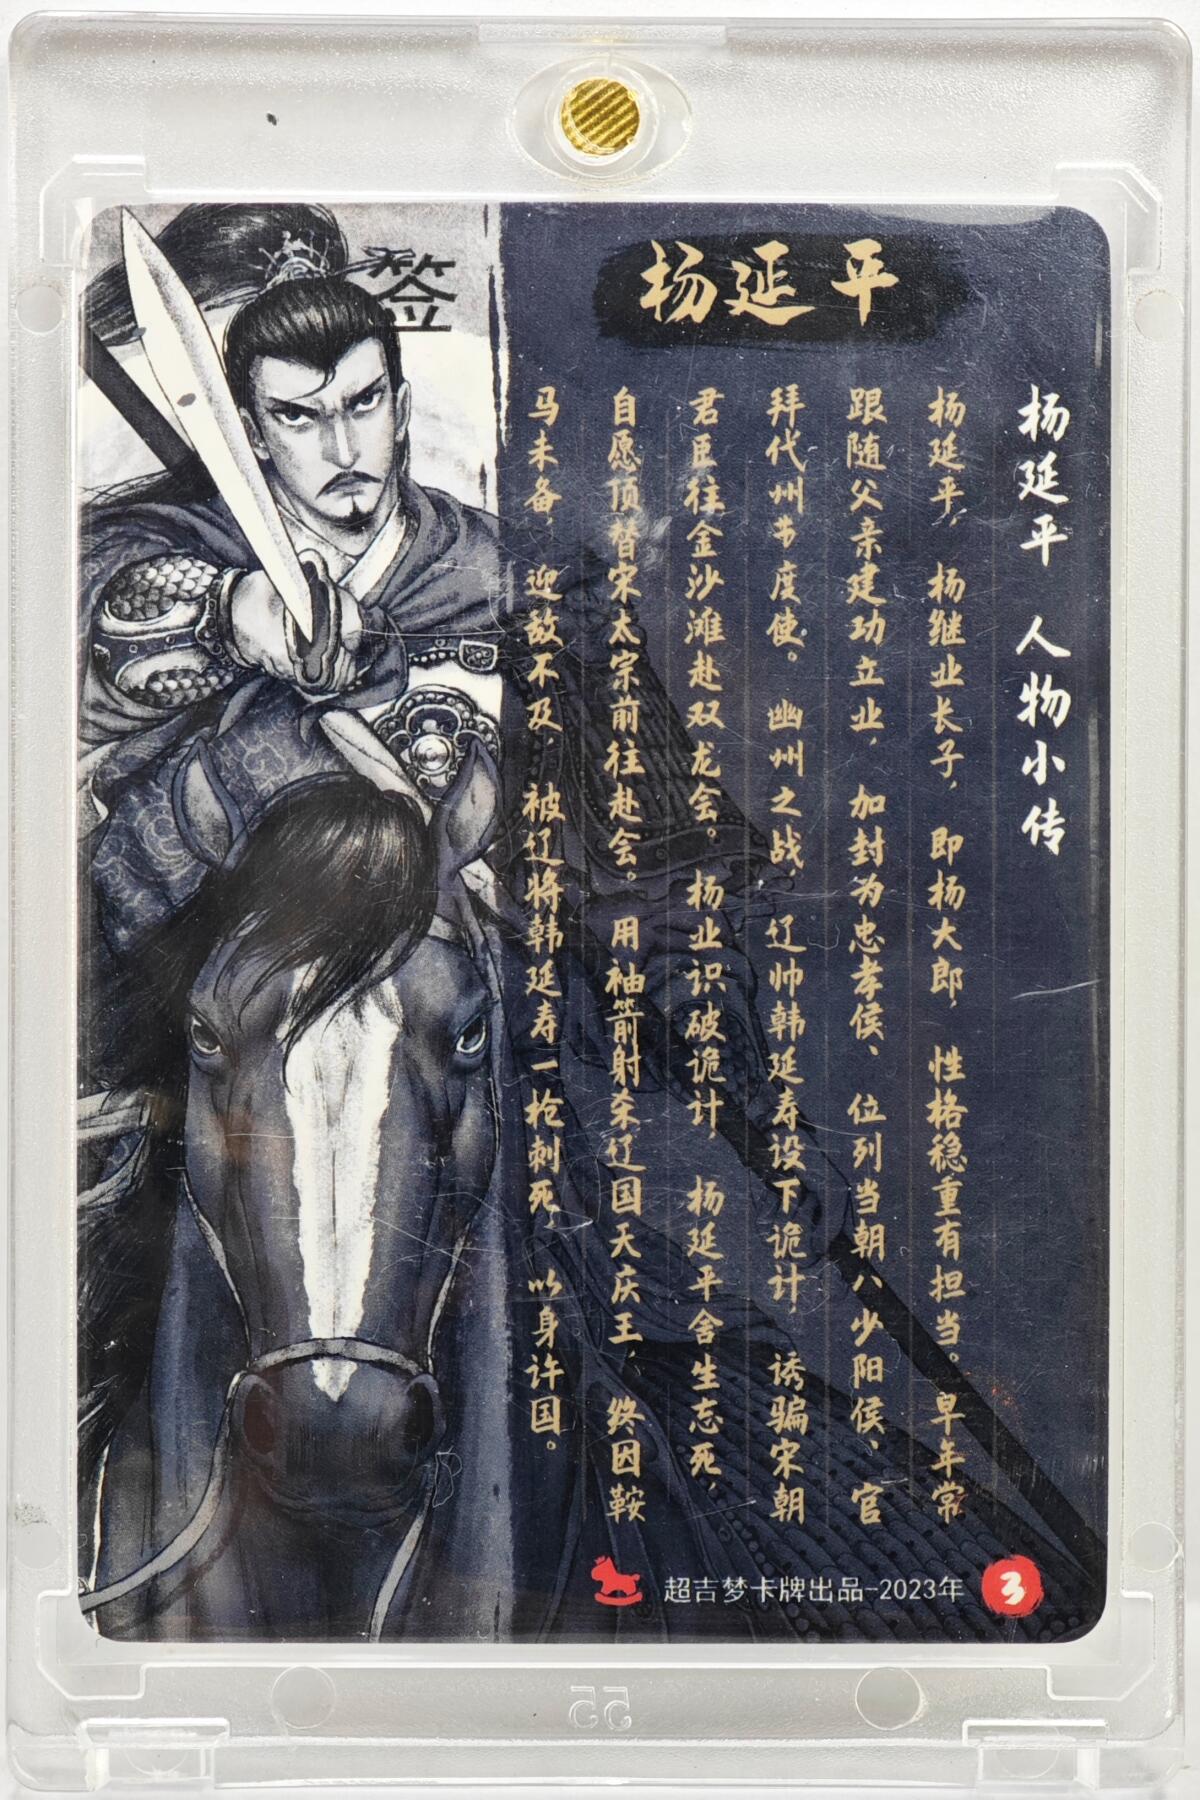 杨延平
签
杨延平 人物小传
杨延平，杨继业长子，即杨大郎，性格稳重有担当。早年常
跟随父亲建功立业，加封为忠孝侯、位列当朝八少阳侯、官
拜代州节度使。幽州之战，辽帅韩延寿设下诡计，诱骗宋朝
君臣往金沙滩赴双龙会。杨业识破诡计，杨延平舍生忘死，
自愿顶替宋太宗前往赴会。用袖箭射杀辽国天庆王，终因鞍
马未备，迎敌不及，被辽将韩延寿一枪刺死，以身许国。
超吉梦卡牌出品-2023年
3
55